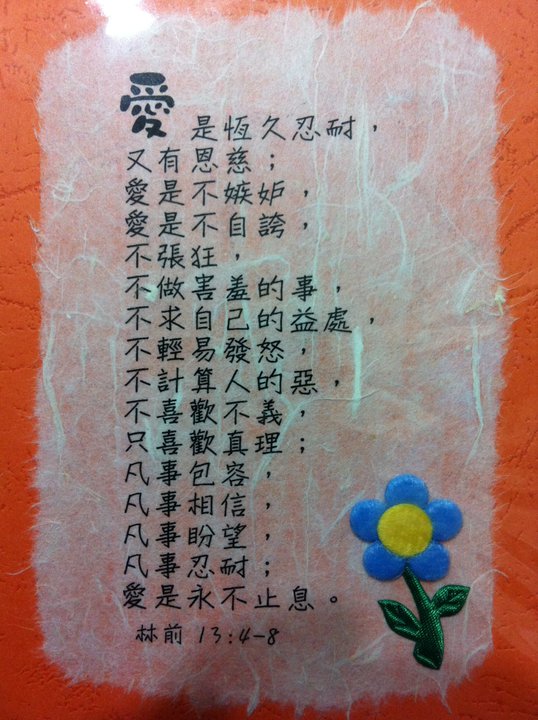 愛是恆久忍耐，
又有恩慈；
愛是不嫉妒，
愛是不自誇，
不張狂，
不做害羞的事，
不求自己的益處，
不輕易發怒，
不計算人的惡，
不喜歡不義，
只喜歡真理；
凡事包容，
凡事相信，
凡事盼望，
凡事忍耐；
愛是永不止息。
林前 13:4-8